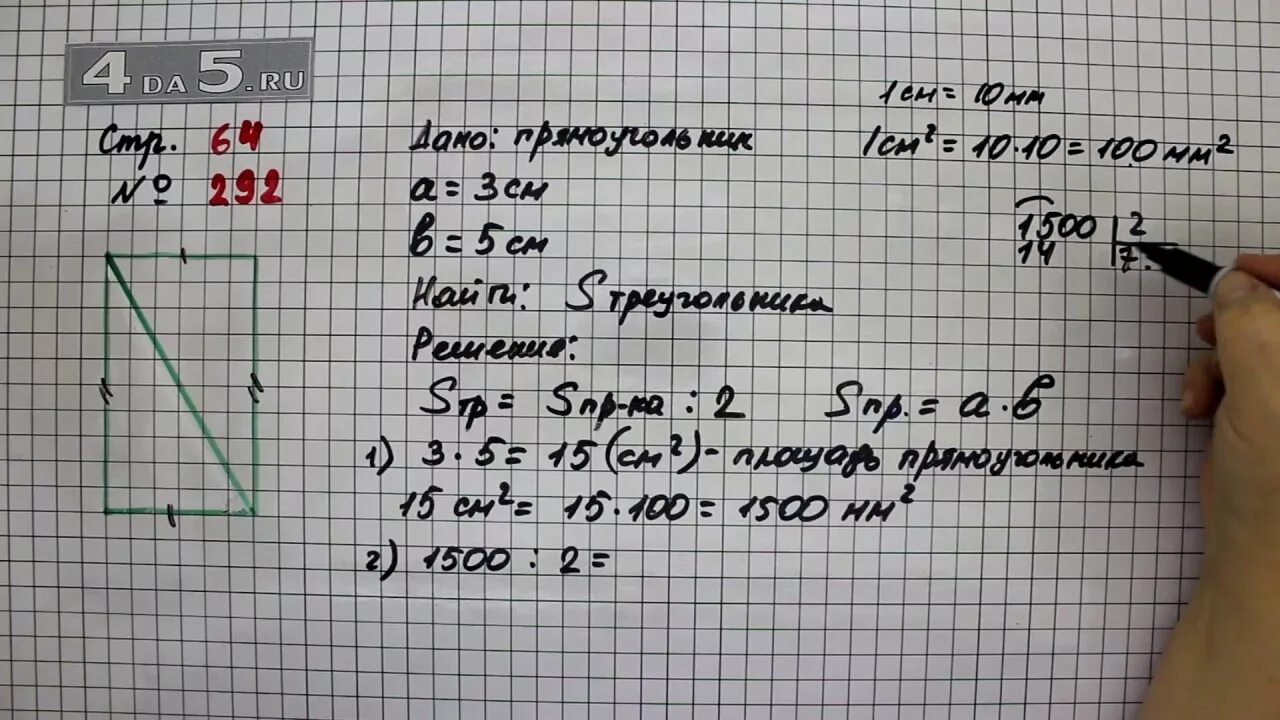 4DA5.RU
Стр. 64
№ 292
Дано: прямоугольник
a = 3 см
в = 5 см
Найти: S треугольника
Решение:
Sтр = Sпр-ка : 2 Sпр. = a · в
1) 3 · 5 = 15 (см²) - площадь прямоугольника
15 см² = 15 · 100 = 1500 мм²
2) 1500 : 2 =
1 см = 10 мм
1 см² = 10 · 10 = 100 мм²
1500 | 2
14 | 7.